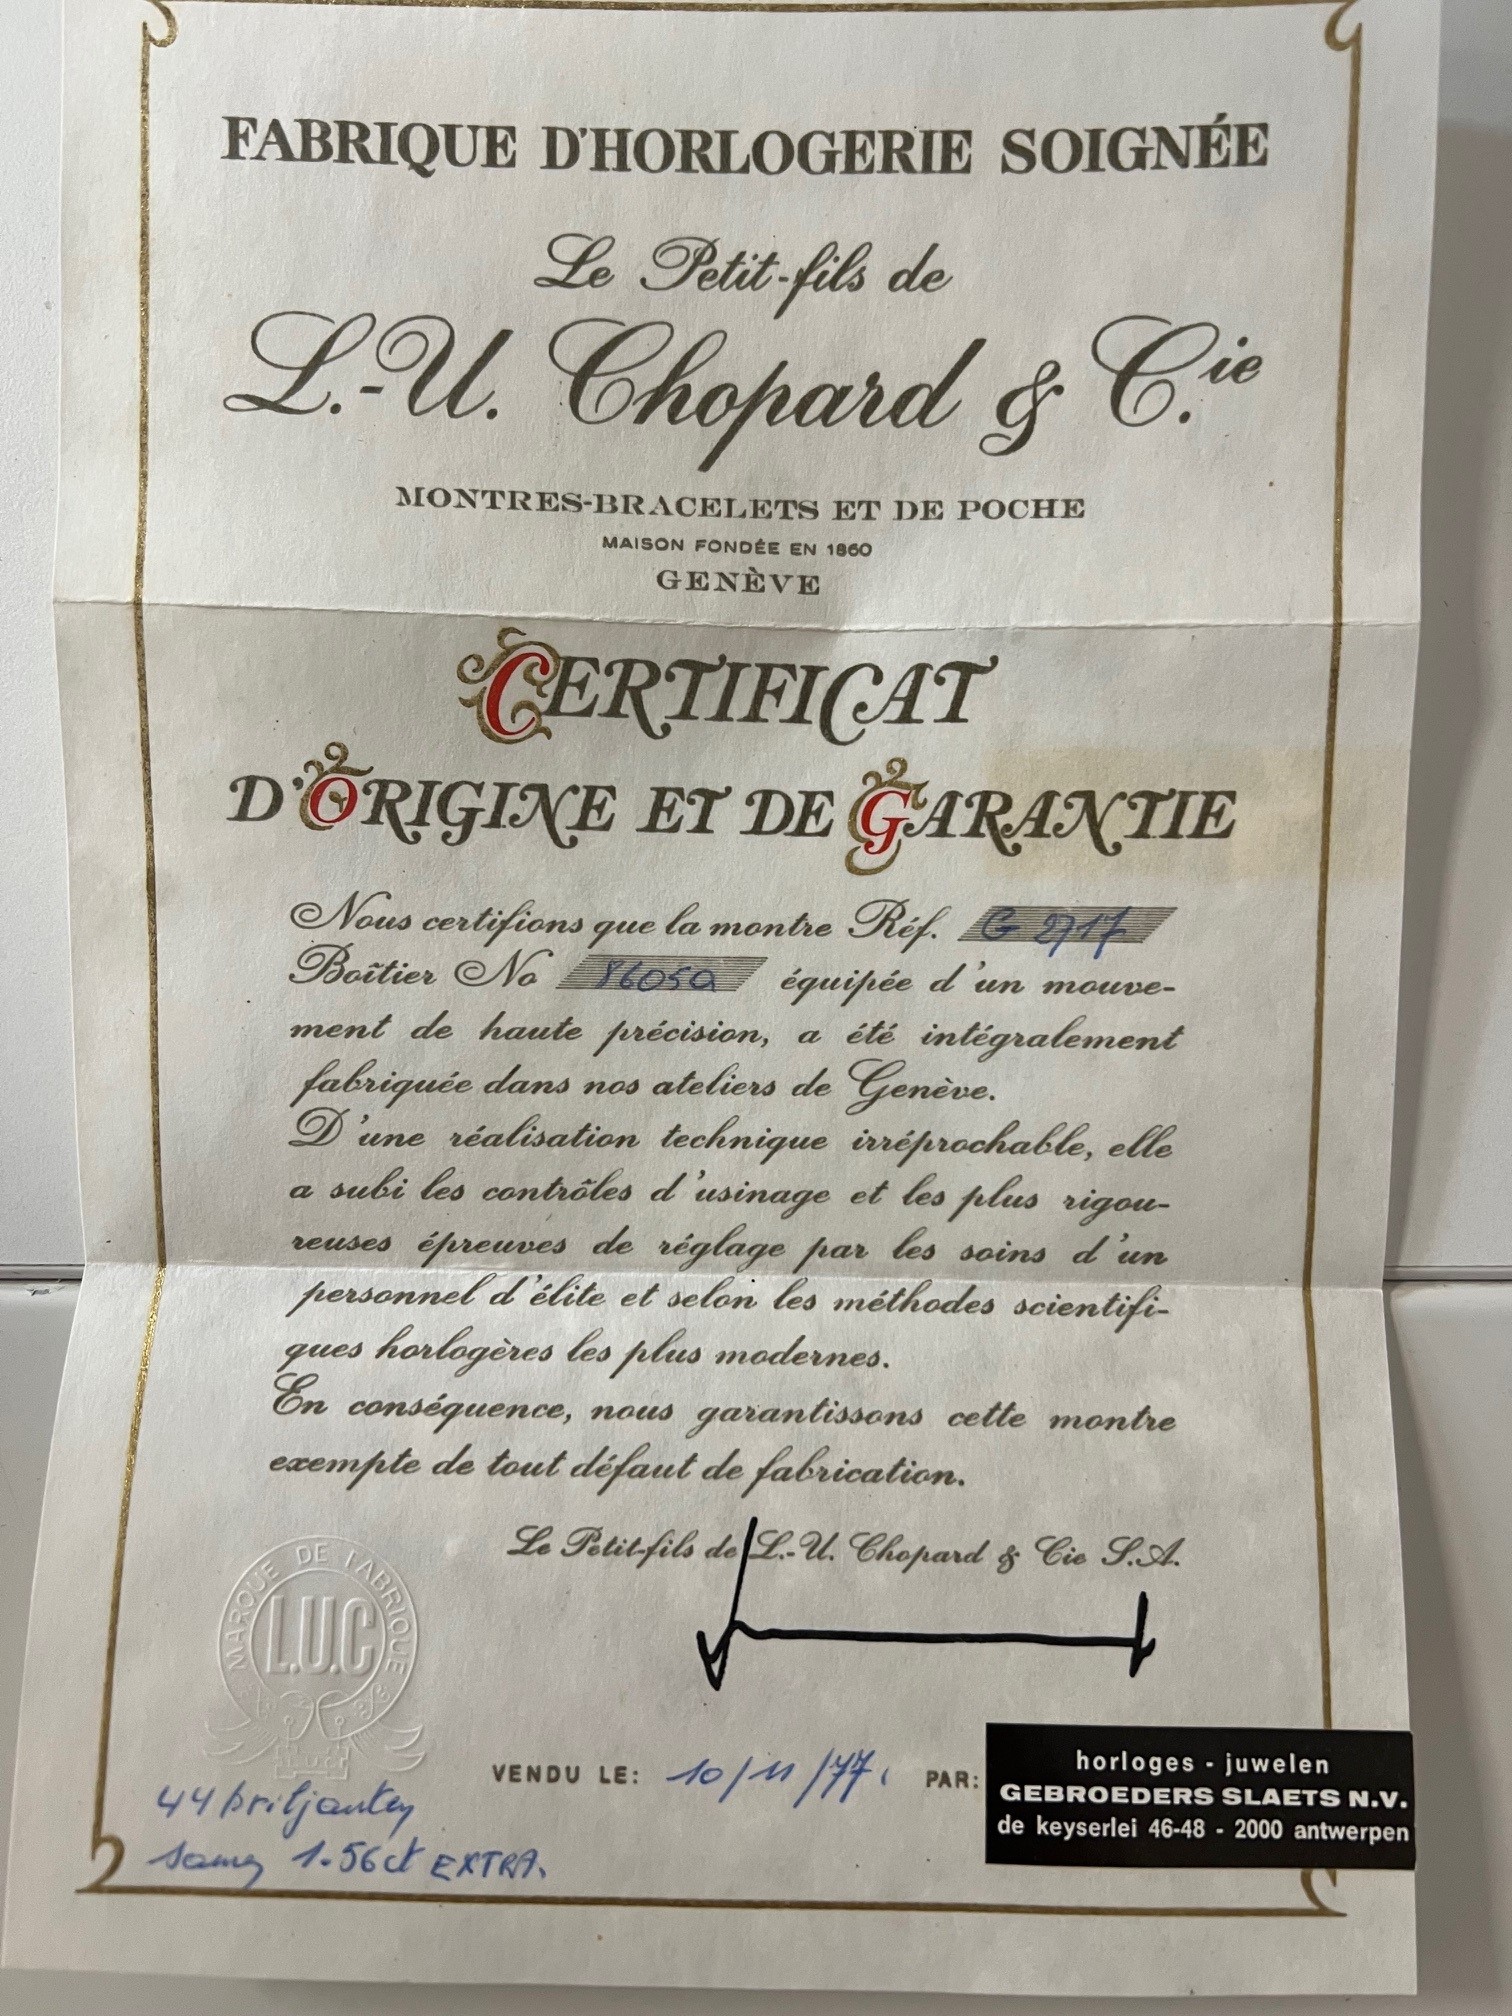 FABRIQUE D'HORLOGERIE SOIGNÉE
Le Petit-fils de
L.-U. Chopard & C.ie
MONTRES-BRACELETS ET DE POCHE
MAISON FONDÉE EN 1860
GENÈVE
CERTIFICAT
D'ORIGINE ET DE GARANTIE
Nous certifions que la montre Réf. G 2717
Boîtier No équipée d'un mouve-
ment de haute précision, a été intégralement
fabriquée dans nos ateliers de Genève.
D'une réalisation technique irréprochable, elle
a subi les contrôles d'usinage et les plus rigou-
reuses épreuves de réglage par les soins d'un
personnel d'élite et selon les méthodes scientifi-
ques horlogères les plus modernes.
En conséquence, nous garantissons cette montre
exempte de tout défaut de fabrication.
Le Petit-fils de L.-U. Chopard & Cie S.A.
MARQUE DE FABRIQUE
L.U.C
VENDU LE: 10/11/77. PAR:
horloges - juwelen
GEBROEDERS SLAETS N.V.
de keyserlei 46-48 - 2000 antwerpen
44 briljanten
samen 1.56ct EXTRA.